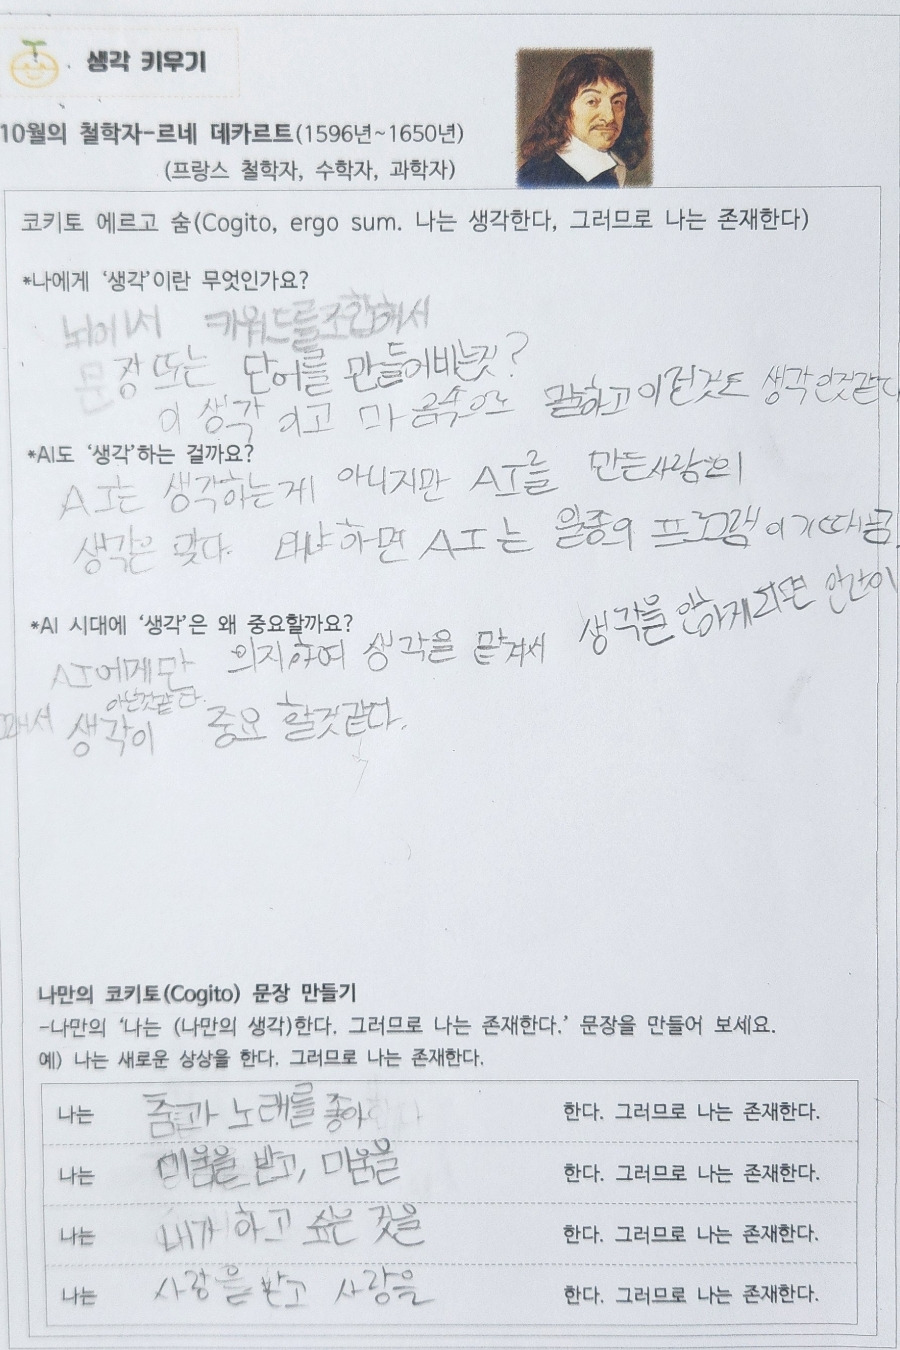 생각 키우기
10월의 철학자-르네 데카르트(1596년~1650년)
(프랑스 철학자, 수학자, 과학자)
코키토 에르고 숨(Cogito, ergo sum. 나는 생각한다, 그러므로 나는 존재한다)
*나에게 '생각'이란 무엇인가요?
뇌에서 키워드를 조합해서
문장 또는 단어를 만들어내는것?
이 생각 이고 마음속으로 말하고 이런것도 생각인것같다
*AI도 '생각'하는 걸까요?
AI는 생각하는게 아니지만 AI를 만든사람의
생각은 맞다. 왜냐하면 AI는 일종의 프로그램이기 때문
*AI 시대에 '생각'은 왜 중요할까요?
AI에게만 의지하여 생각을 맡겨서 생각을 안하게되면 인간이
아닌것같다.
그래서 생각이 중요 할것같다.
나만의 코키토(Cogito) 문장 만들기
-나만의 '나는 (나만의 생각)한다. 그러므로 나는 존재한다.' 문장을 만들어 보세요.
예) 나는 새로운 상상을 한다. 그러므로 나는 존재한다.
나는 춤과 노래를 좋아 한다. 그러므로 나는 존재한다.
나는 미움을 받고, 미움을 한다. 그러므로 나는 존재한다.
나는 내가 하고 싶은 것을 한다. 그러므로 나는 존재한다.
나는 사랑을 받고 사랑을 한다. 그러므로 나는 존재한다.